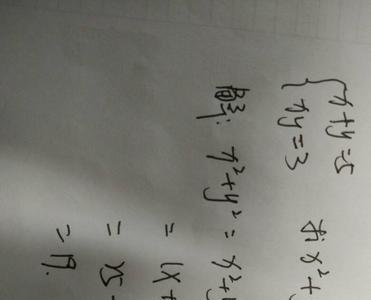 {x+y=5
xy=3 求x²+
解: x²+y²=x²+y
=(x+
=25-
=19.